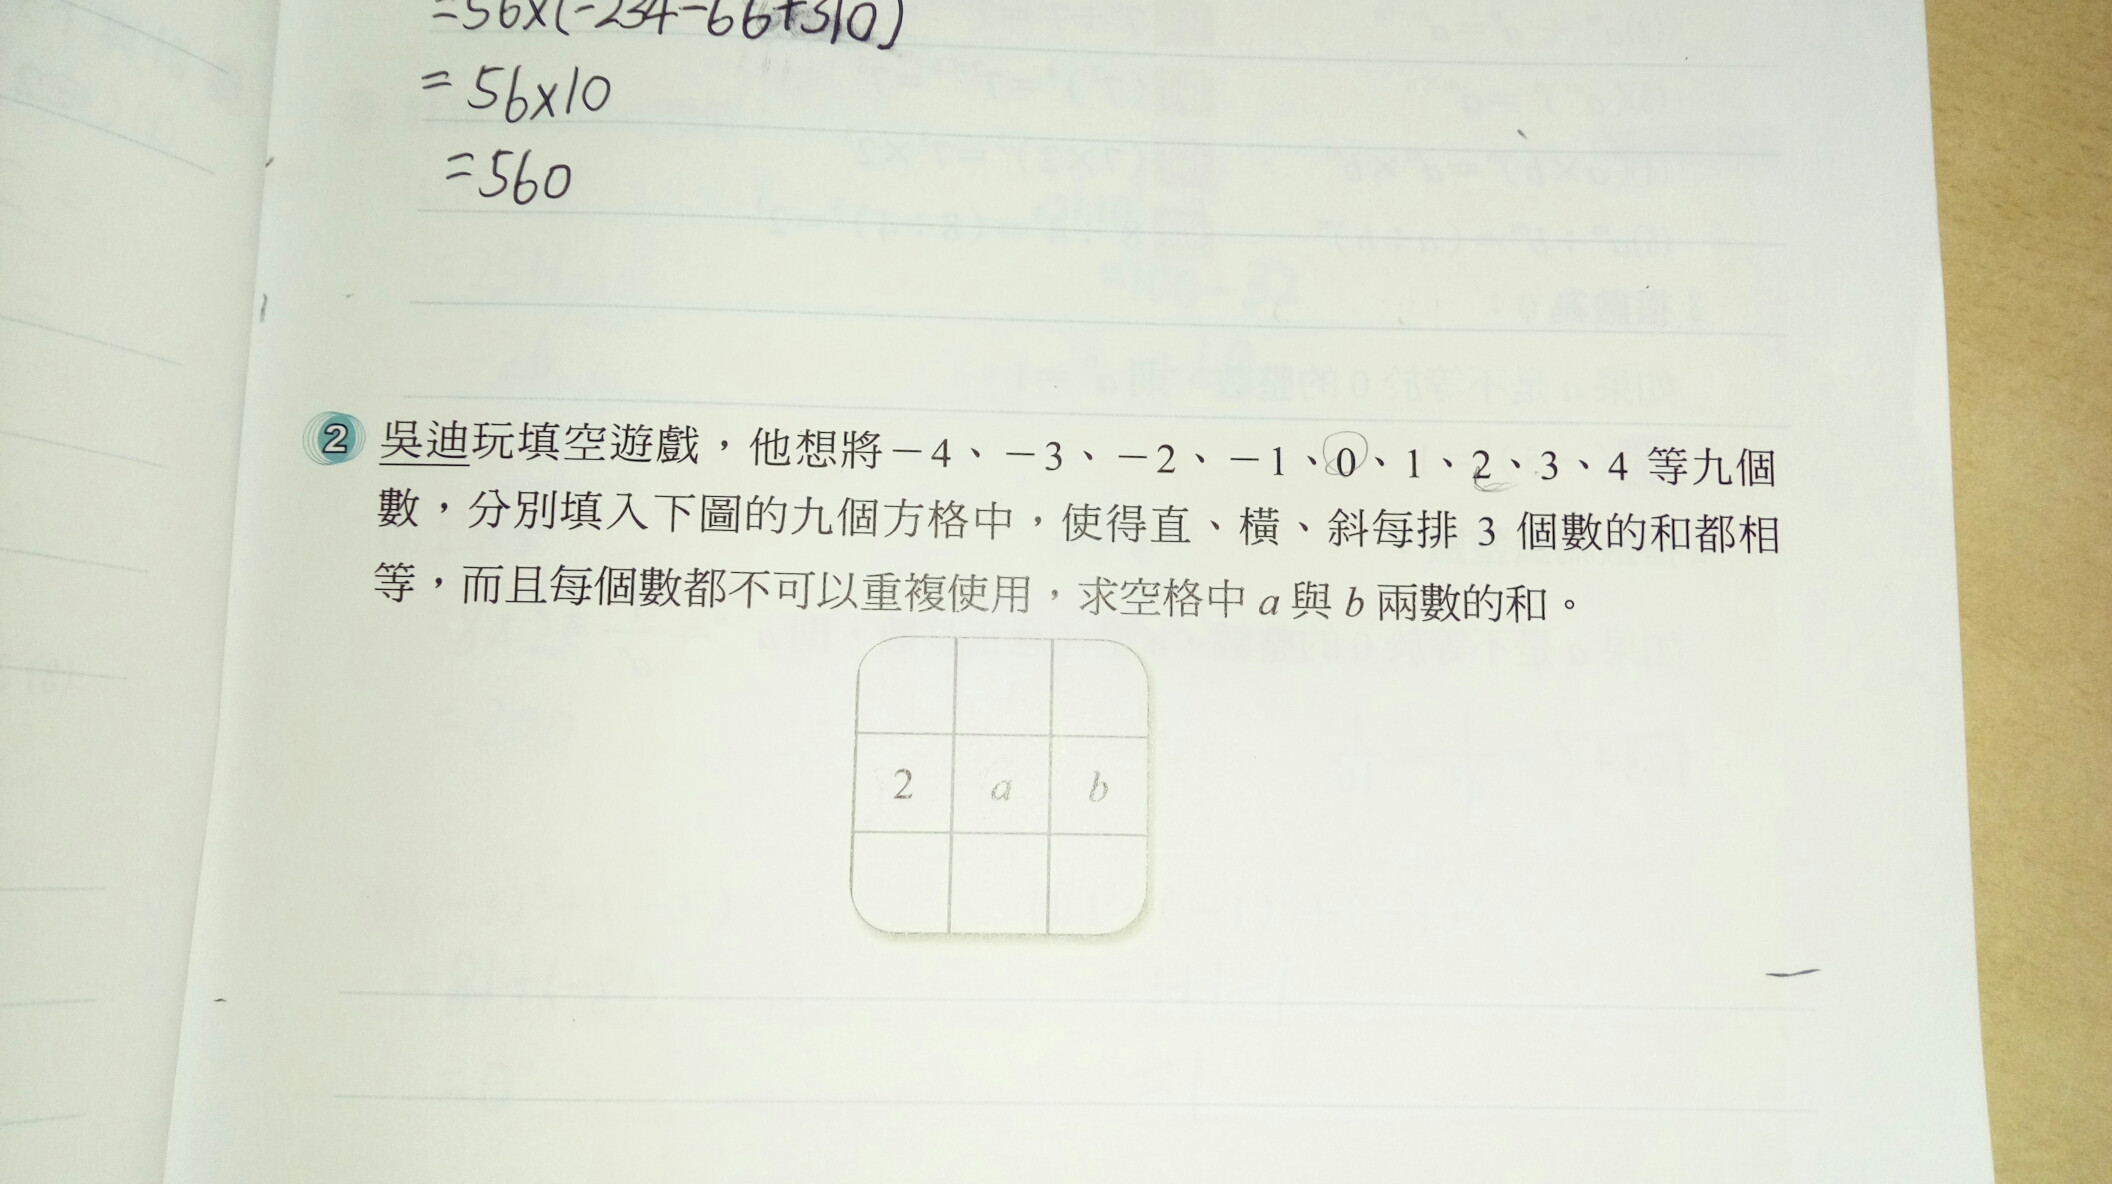 =56×(-234-66+310)
=56×10
=560
2 吳迪玩填空遊戲，他想將－4、－3、－2、－1、0、1、2、3、4 等九個
數，分別填入下圖的九個方格中，使得直、橫、斜每排 3 個數的和都相
等，而且每個數都不可以重複使用，求空格中 a 與 b 兩數的和。
2 a b